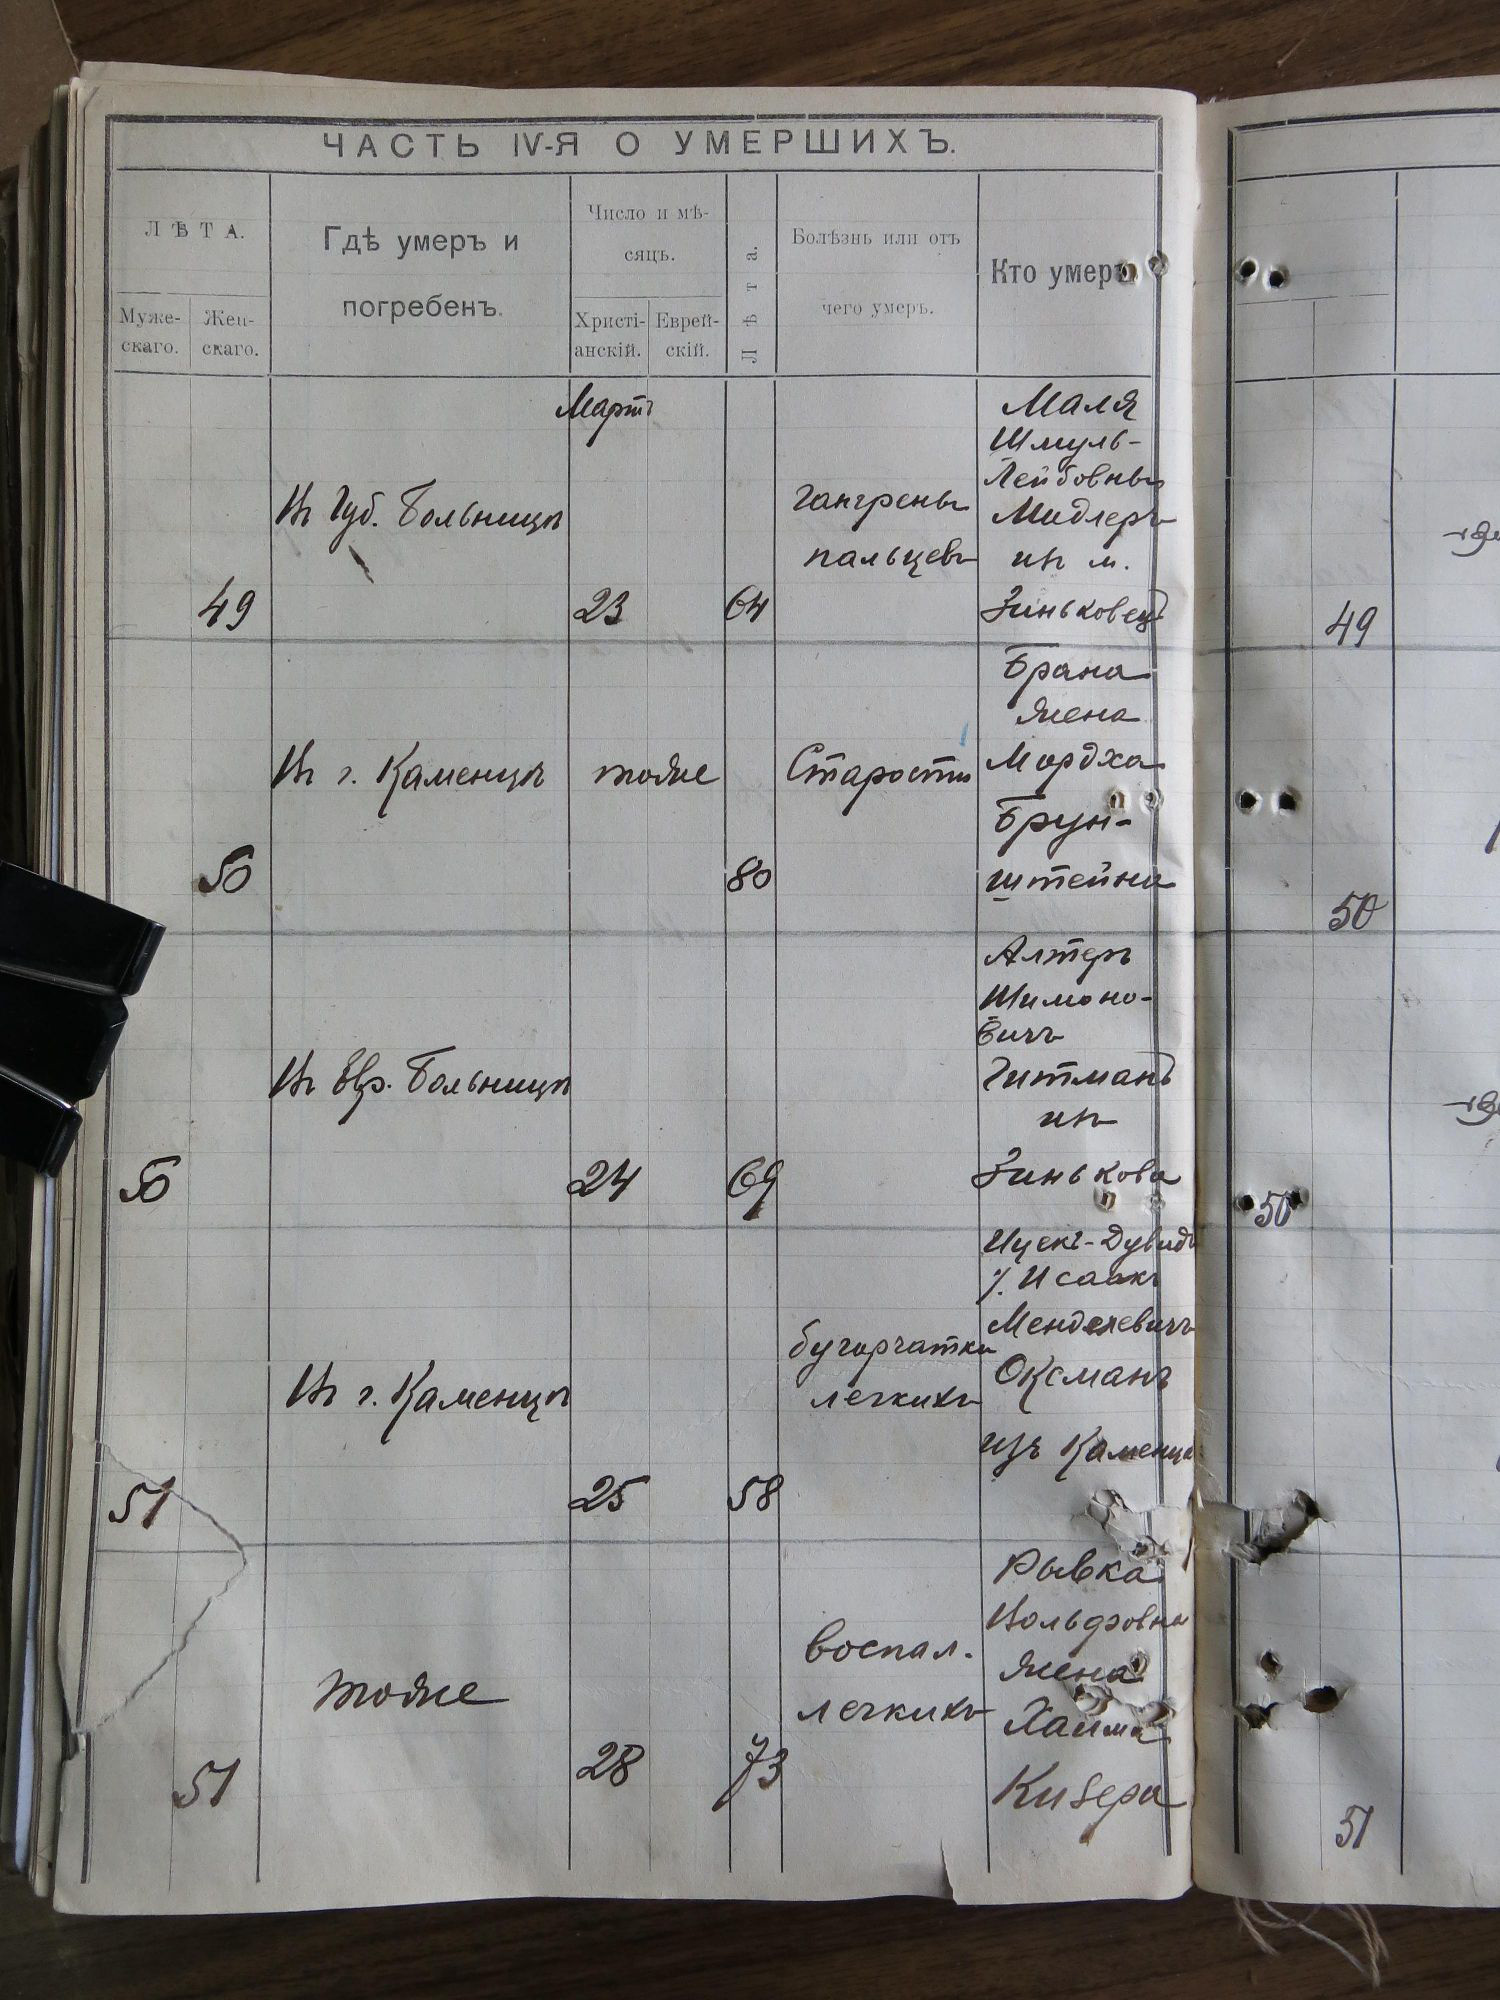 ЧАСТЬ IV-Я О УМЕРШИХЪ.
ЛѢТА.
Муже-
скаго.
Жен-
скаго.
Гдѣ умеръ и
погребенъ.
Число и мѣ-
сяцъ.
Христі-
анскій.
Еврей-
скій.
Лѣта.
Болѣзнь или отъ
чего умеръ.
Кто умеръ
49
Въ Губ. Больницѣ
Мартъ
23
64
гангрены
пальцевъ
Маля
Шмуль-
Лейбовны
Мидлеръ
изъ м.
Зиньковецъ
50
Въ г. Каменцѣ
тоже
80
Старости
Брана
жена
Мордха
Брун-
штейна
50
Въ Евр. Больницѣ
24
69
Алтеръ
Шимоно-
вичъ
Гитманъ
изъ
Зинькова
51
Въ г. Каменцѣ
25
58
бугорчатки
легкихъ
Ицекъ-Дувидъ
Исаакъ
Менделевичъ
Оксманъ
изъ Каменца
51
тоже
28
73
воспал.
легкихъ
Рывка
Вольфовна
жена
Хаима
Кизера
49
50
50
51